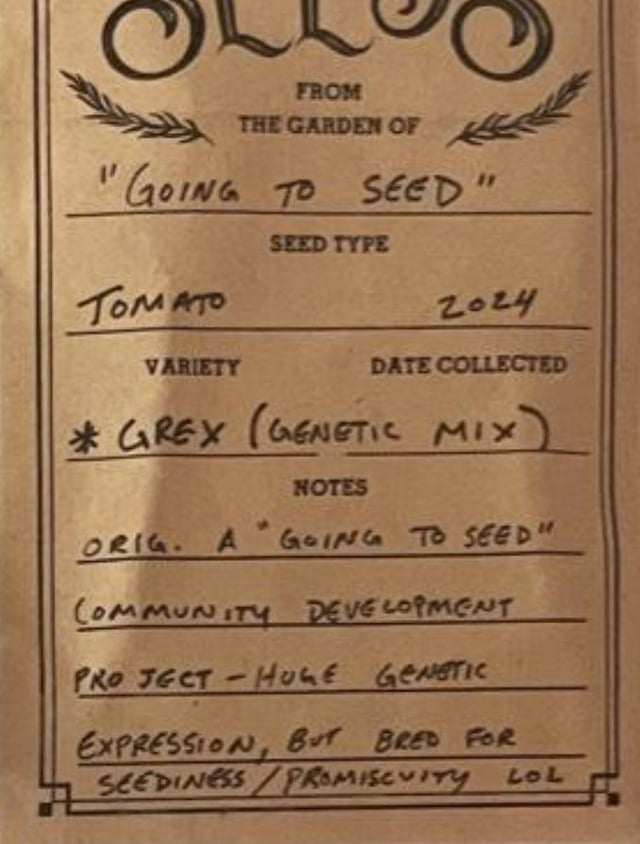 SEEDS
FROM
THE GARDEN OF
"GOING TO SEED"
SEED TYPE
TOMATO 2024
VARIETY DATE COLLECTED
* GREX (GENETIC MIX)
NOTES
ORIG. A "GOING TO SEED"
COMMUNITY DEVELOPMENT
PROJECT - HUGE GENETIC
EXPRESSION, BUT BRED FOR
SEEDINESS/PROMISCUITY LOL